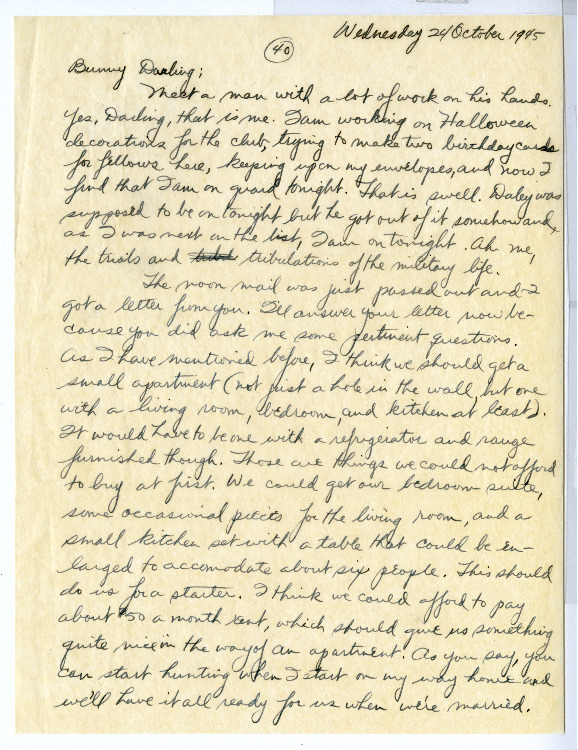 Wednesday 24 October 1945
40
Bunny Darling;
Meet a man with a lot of work on his hands.
Yes, Darling, that is me. I am working on Halloween
decorations for the club, trying to make two birthday cards
for fellows here, keeping up on my envelopes, and now I
find that I am on guard tonight. That is swell. Daley was
supposed to be on tonight but he got out of it somehow and,
as I was next on the list, I am on tonight. Ah me,
the trials and tribulations of the military life.
The noon mail was just passed out and I
got a letter from you. I'll answer your letter now be-
cause you did ask me some pertinent questions.
As I have mentioned before, I think we should get a
small apartment (not just a hole in the wall, but one
with a living room, bedroom, and kitchen at least).
It would have to be one with a refrigerator and range
furnished though. Those are things we could not afford
to buy at first. We could get our bedroom suite,
some occasional pieces for the living room, and a
small kitchen set with a table that could be en-
larged to accomodate about six people. This should
do us for a starter. I think we could afford to pay
about $50 a month rent, which should give us something
quite nice in the way of an apartment. As you say, you
can start hunting when I start on my way home and
we'll have it all ready for us when we're married.